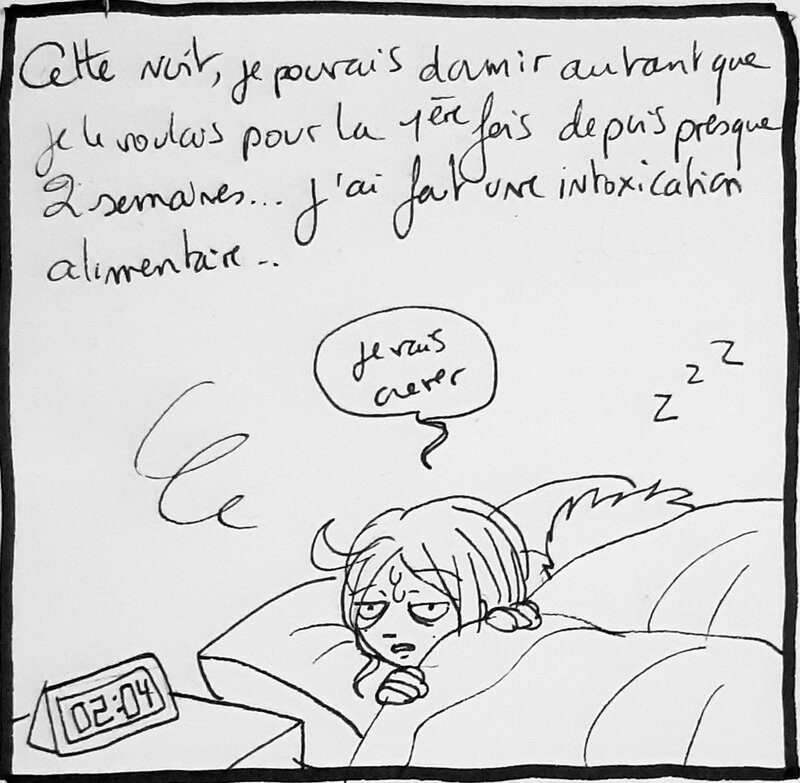 Cette nuit, je pouvais dormir autant que
je le voulais pour la 1ère fois depuis presque
2 semaines... J'ai fait une intoxication
alimentaire..
je vais
crever
z z z
02:04